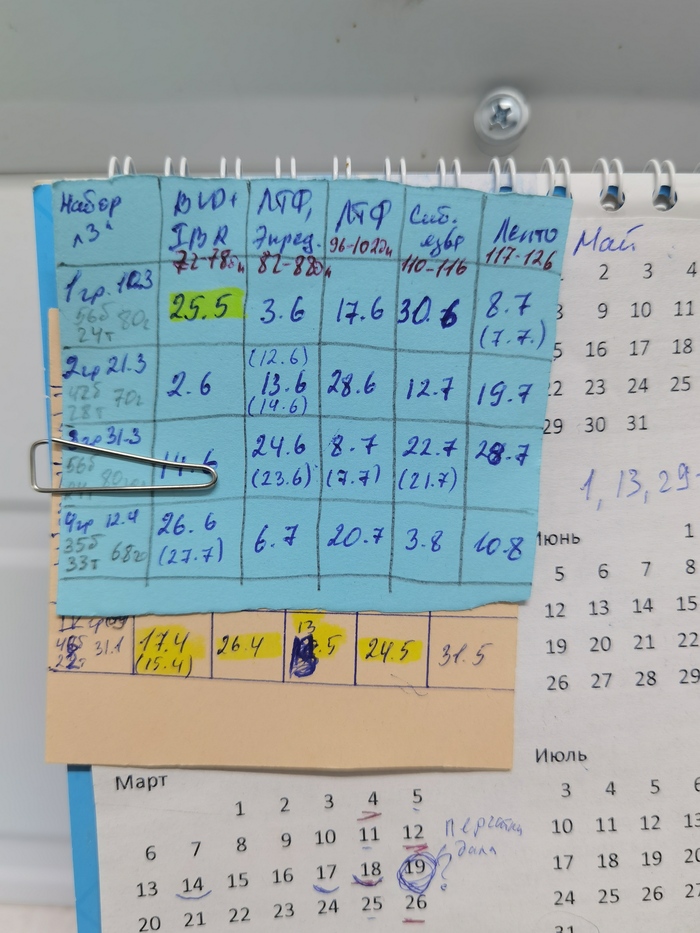 Набор ВVD+ ЛТФ, ЛТФ Сиб. Ленто
"3" IBR Энцеф. 96-102дн язва 117-126
72-78дн 82-88дн 110-116
1 гр. 10.3 25.5 3.6 17.6 30.6 8.7
56б 80г (7.7.)
24т
2гр 21.3 2.6 (12.6) 28.6 12.7 19.7
42б 70г 13.6
28т (14.6)
3гр 31.3 14.6 24.6 8.7 22.7 28.7
56б (23.6) (7.7) (21.7)
4гр 12.4 26.6 6.7 20.7 3.8 10.8
35б 68г (27.7)
33т
31.1 17.4 26.4 13 .5 24.5 31.5
22т (15.4)
Май
2 3 4
9 10 11
16 17 18
23 24 25
29 30 31
1, 13, 29
Июнь
1
5 6 7 8
12 13 14 15
19 20 21 22
26 27 28 29
Июль
3 4 5 6
10 11 12 13
17 18 19 20
24 25 26 27
31
Март
1 2 3 4 5
6 7 8 9 10 11 12
13 14 15 16 17 18 19
20 21 22 23 24 25 26
Перчатки
дала
?